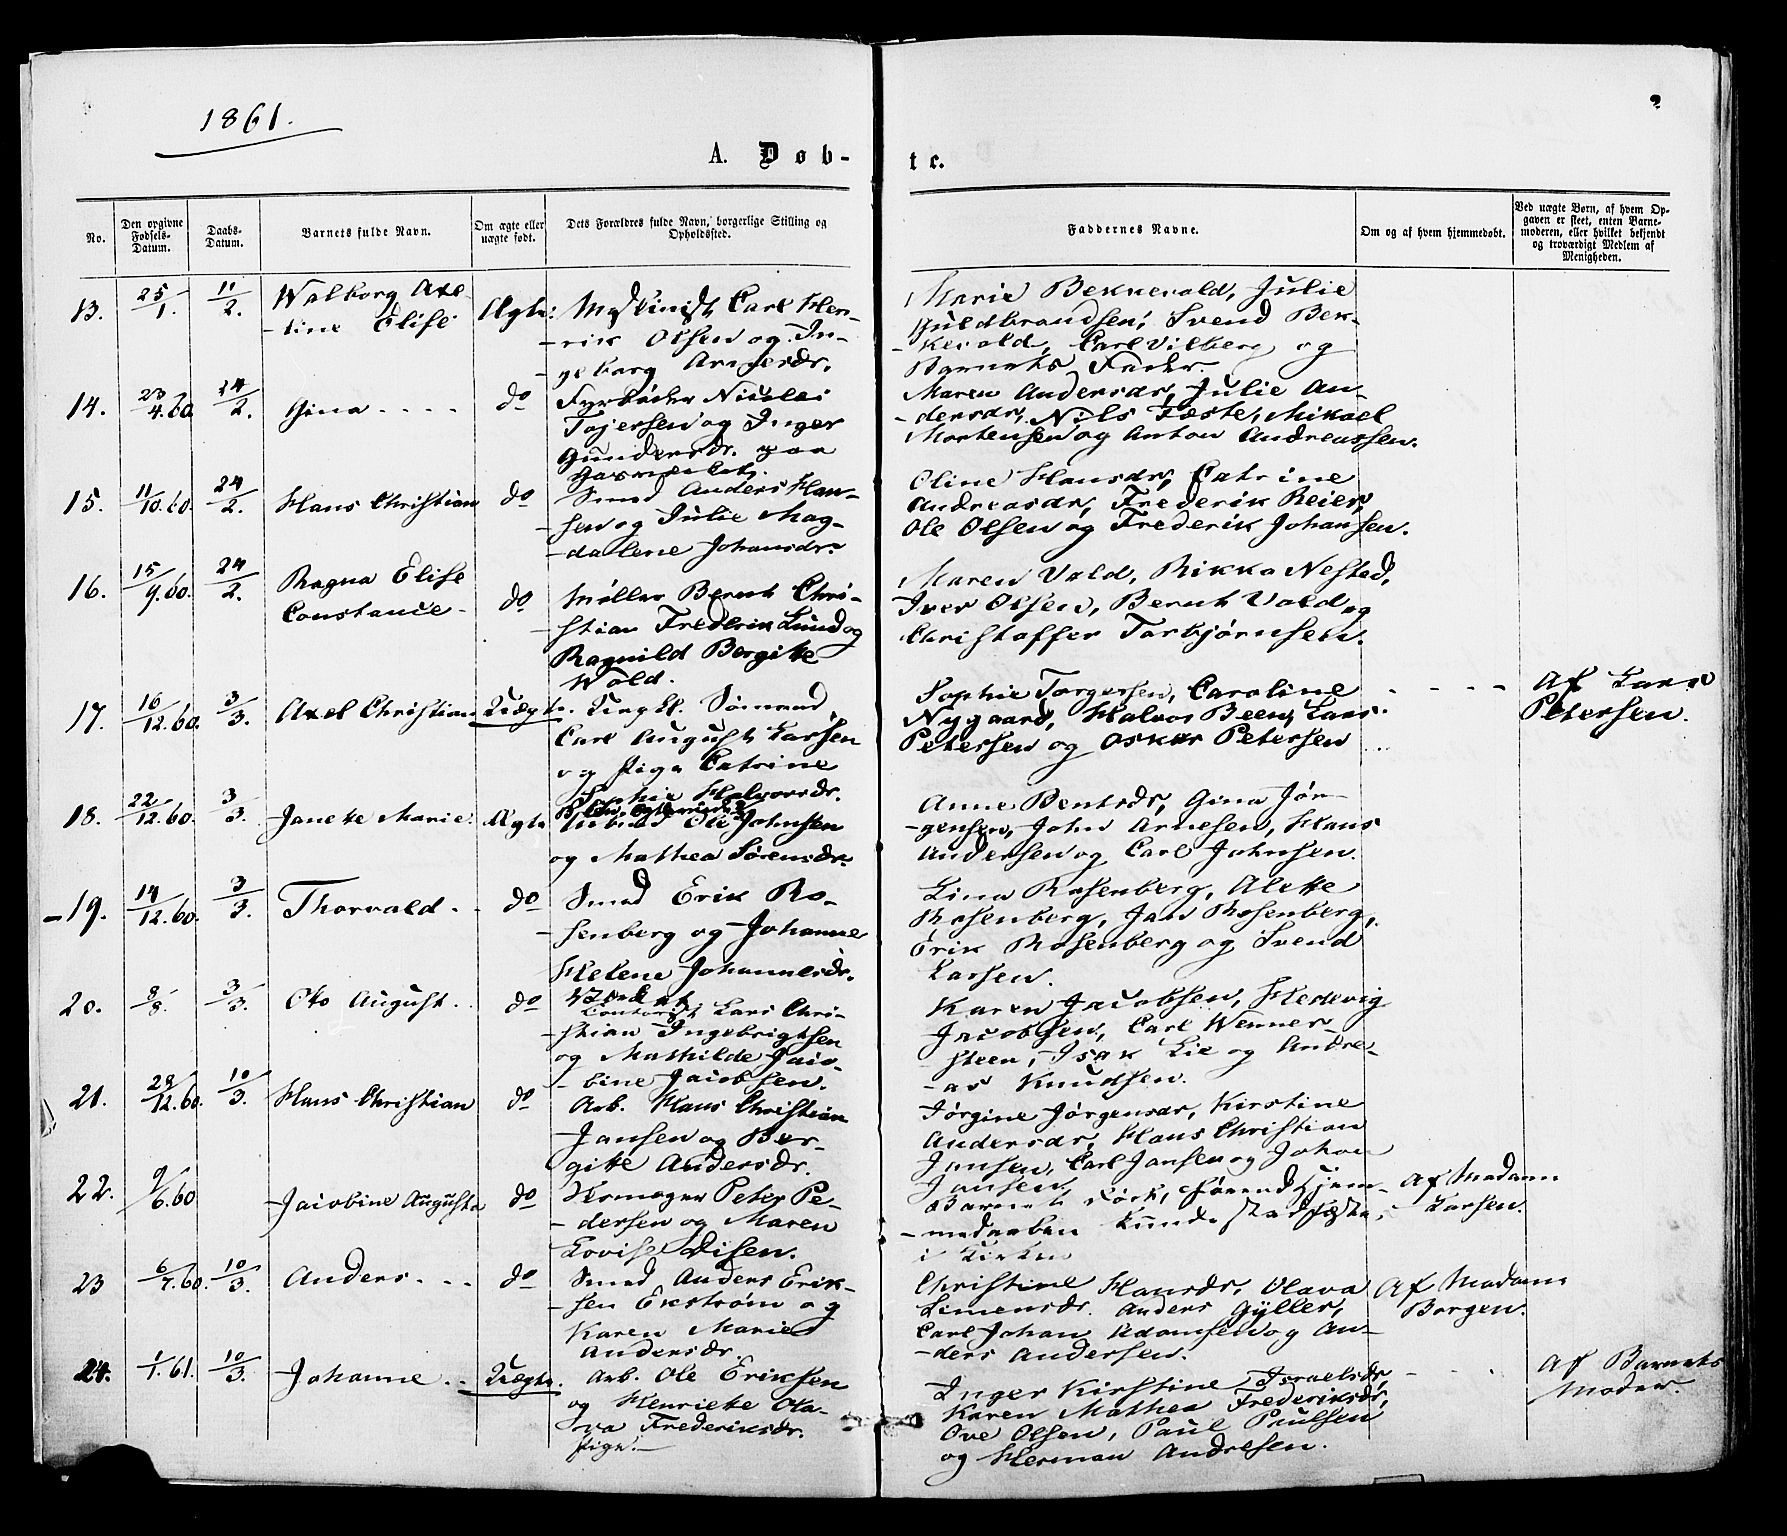 1861.
2
A. Døb-
te.
No.
Den opgivne Fødsels-Datum.
Daabs-Datum.
Barnets fulde Navn.
Om ægte eller uægte født.
Dets Forældres fulde Navn, borgerlige Stilling og Opholdssted.
Faddernes Navne.
Om og af hvem hjemmedøbt.
Ved uægte Børn, af hvem Op-
gaven er skeet, enten Barne-
moderen, eller hvilket bekjendt
og troværdigt Medlem af
Menigheden.
13. 25/1. 11/2. Walborg Axe-
-line Elise
Ægte: Maskinist Carl Hen-
-rik Olsen og In-
geborg Arnesdr.
Marie Bekkevold, Julie
Huldbrandsen, Svend Bek-
-kevold, Carl Vilberg og
Barnets Fader.
14. 23/4.60. 24/2. Gina
do Fyrbøder Nicolai
Tojersen og Inger
Gundersdr. paa
Gasværket.
Maren Andersdr, Julie An-
-dersdr, Nils Fæste, Mikael
Mortensen og Anton Andreassen.
15. 11/10.60. 24/2. Hans Christian
do Smed Anders Han-
-sen og Julie Mag-
-dalene Johansdr.
Oline Hansdr, Catrine
Andreasdr, Frederik Reier,
Ole Olsen og Frederik Johansen.
16. 15/9.60. 24/2. Ragna Elise
Constance
do Møller Bernt Chri-
-stian Frederik Lund og
Ragnild Bergitte
Wold.
Maren Vold, Rikka Nested,
Iver Olsen, Bernt Vold og
Christoffer Torbjørnsen.
17. 16/12.60. 3/3. Axel Christian
Uægte. Ungk. Sømand
Carl August Larsen
og Pige Catrine
Sophie Halvorsdr.
Sophie Torgersen, Caroline
Nygaard, Halvor Been, Lars
Petersen og Oskar Petersen
Af Lars
Petersen.
18. 22/12.60. 3/3. Janette Marie.
Ægte
Ole Johnsen
og Mathea Sørensdr.
Anne Bentsdr, Gina Jør-
-gensen, John Arnesen, Hans
Andersen og Carl Johnsen.
-19. 14/12.60. 3/3. Thorvald
do Smed Erik Ro-
-senberg og Johanne
Helene Johannesdr.
Lina Rosenberg, Alette
Rosenberg, Jan Rosenberg,
Erik Rosenberg og Svend
Larsen.
20. 8/8. 3/3. Oto August
do
Contorist Lars Chri-
-stian Ingebrigtsen
og Mathilde Jaco-
-bine Jacobsen.
Karen Jacobsen, Hedevig
Jacobsen, Carl Wenner-
steen, Isak Lie og Andre-
-as Knudsen.
21. 29/12.60. 10/3. Hans Christian
do Arb. Hans Christian
Jansen og Ber-
gitte Andersdr.
Jørgine Jørgensdr, Kirstine
Andersdr, Hans Christian
Jansen, Carl Jansen og Johan
Jansen.
22. 9/6.60 Jacobine Augusta
do Kornager Peter Pe-
-dersen og Maren
Lovise Disen.
Barnet døde, førend Hjem-
-medaaben kunde stadfæstes
i Kirken
Af Madam
Larsen.
23 6/7.60. 10/3. Anders
do Smed Anders Erik-
-sen Ekstrøm og
Karen Marie
Andersdr.
Christine Hansdr, Olava
Simensdr. Anders Gyller,
Carl Johan Adamsen og An-
-ders Andersen.
Af Madam
Borgen.
24. 1/1.61. 10/3. Johanne
Uægte. Arb. Ole Eriksen
og Henriette Ola-
va Frederiksdr.
Pige.
Inger Kirstine Israelsdr,
Karen Mathea Frederiksdr,
Ove Olsen, Paul Paulsen
og Herman Andresen.
Af Barnets
Moder.